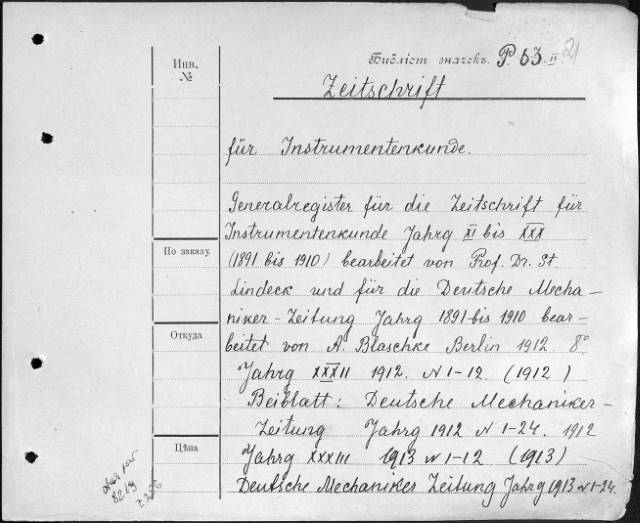 Инв.
№
По заказу.
Откуда
Цѣна
Библіот значекъ. P. 63. II. 21
Zeitschrift
für Instrumentenkunde.
Generalregister für die Zeitschrift für
Instrumentenkunde Jahrg XI bis XXX
(1891 bis 1910) bearbeitet von Prof. Dr. St.
Lindeck und für die Deutsche Mecha-
niker-Zeitung Jahrg 1891 bis 1910 bear-
beitet von A. Blaschke Berlin 1912. 8°
Jahrg XXXII 1912. N 1-12. (1912)
Beiblatt: Deutsche Mechaniker-
Zeitung Jahrg 1912 N 1-24. 1912
Jahrg XXXIII 1913 N 1-12 (1913)
Deutsche Mechaniker Zeitung Jahrg 1913 N 1-24.
8219